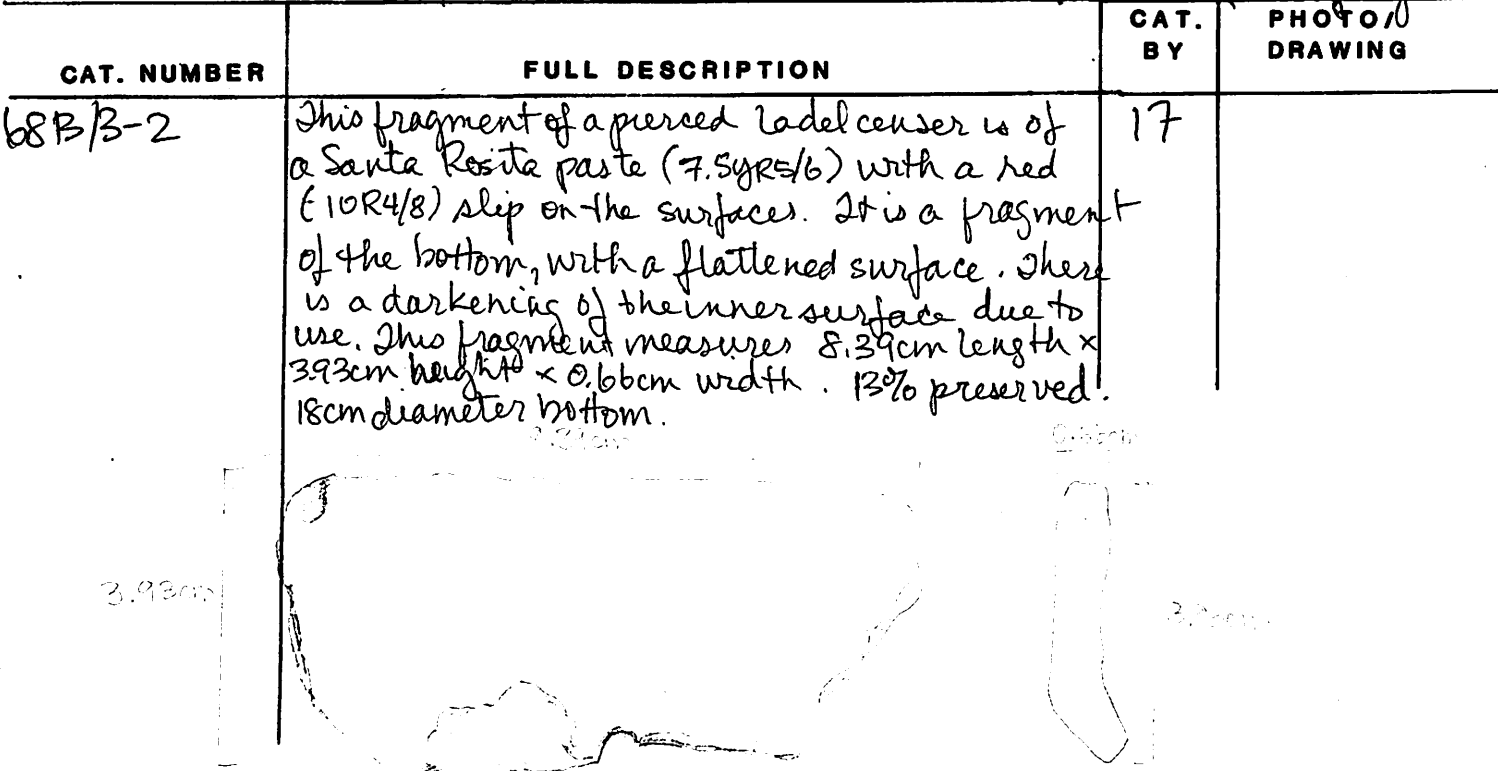 CAT. NUMBER
FULL DESCRIPTION
CAT. BY
PHOTO/
DRAWING
68B/3-2
This fragment of a pierced ladel censer is of
a Santa Rosita paste (7.5YR5/6) with a red
(10R4/8) slip on the surfaces. It is a fragment
of the bottom, with a flattened surface. There
is a darkening of the inner surface due to
use. This fragment measures 8.39cm length x
3.93cm height x 0.66cm width. 13% preserved.
18cm diameter bottom.
17
0.66cm
3.93cm